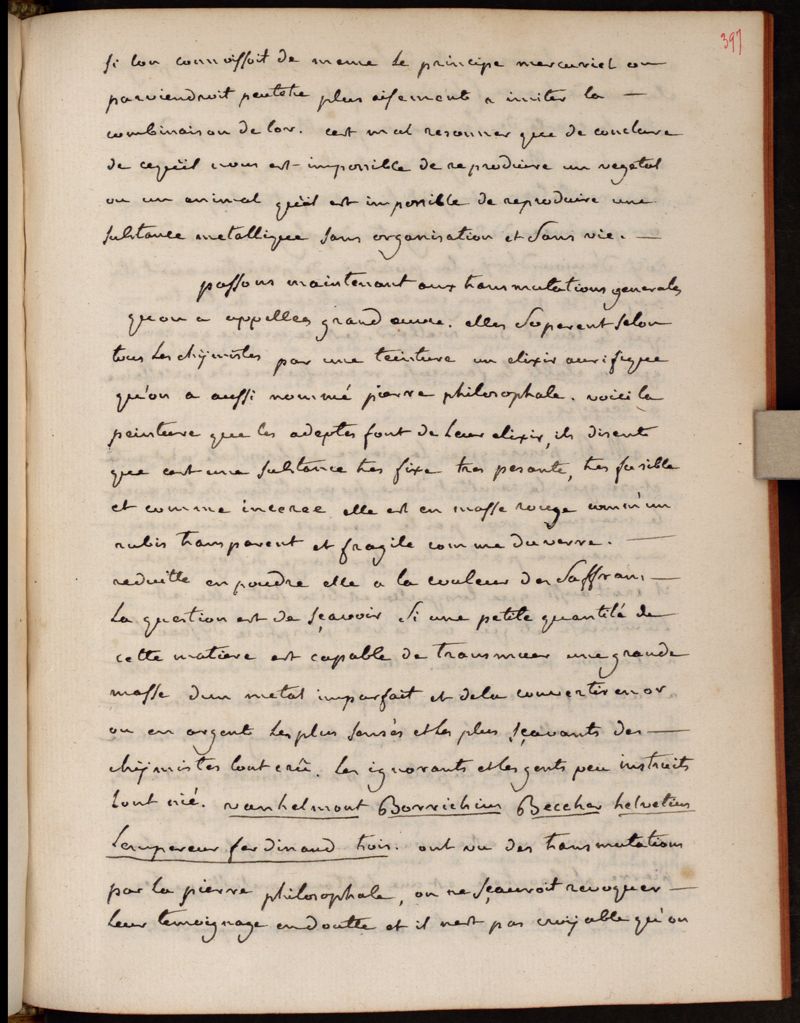 397
si lon connoissoit de meme le principe mercuriel on
parviendroit peutetre plus aisement a imiter la —
combinaison de lor. cest mal resonner que de conclure
de cequil nous est impossible de reproduire un vegetal
ou un animal quil est impossible de reproduire une
substance metallique sans organisation et sans vie. —
passons maintenant aux transmutations generales
quon a appellees grand œuvre. elles soperent selon
tous les chijmistes par une teinture un elixir aurifique
qu'on a aussi nommé pierre philosophale. voici la
peinture que les adeptes font de leur elixir, ils disent
que cest une substance tres fixe tres pesante, tres fusible
et comme inceree elle est en masse rouge comm'un
rubis transparent et fragile comme du verre. —
reduitte en poudre elle a la couleur des saffrans —
la question est de sçavoir si une petite quantité de
cette matiere est capable de transmuer une grande
masse dun metal imparfait et dela convertir en or
ou en argent les plus sensés et les plus sçavants des —
chijmistes lont crû. les ignorants et les gents peu instruits
lont nié. vanhelmont Borrichius Beccher helvetius
Lempereur ferdinand trois. ont vu des transmutations
par la pierre philosophale, on ne sçauroit revoquer —
leur temoignage en doutte et il nest pas croijable qu'on